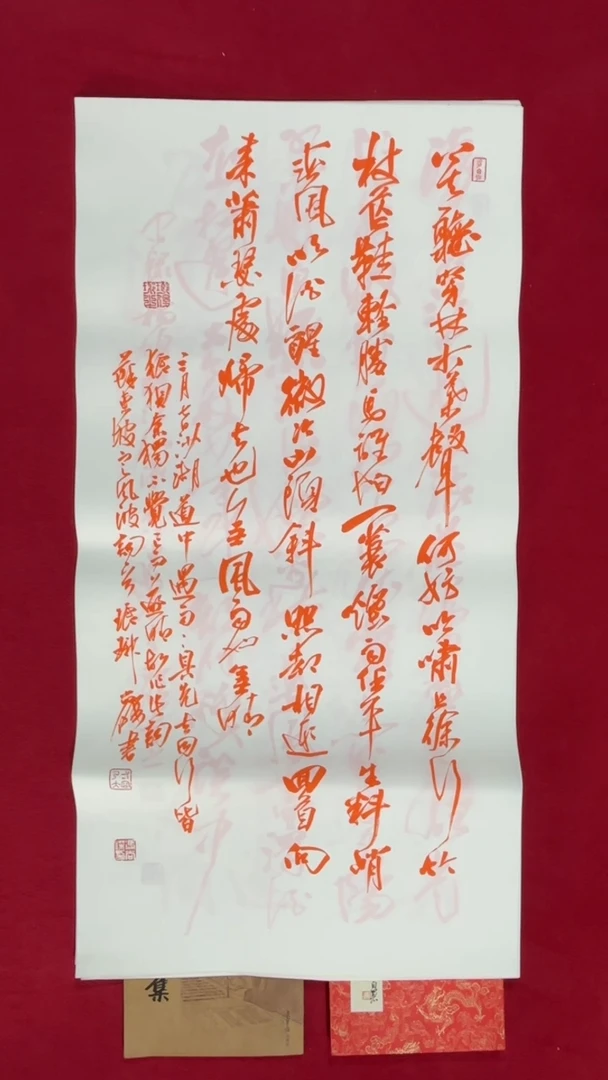 莫聽穿林打葉聲何妨吟嘯且徐行竹
杖芒鞋輕勝馬誰怕一蓑煙雨任平生料峭
春風吹酒醒微冷山頭斜照却相迎回首向
来蕭瑟處歸去也無風雨也無晴
三月七日沙湖道中遇雨雨具先去同行皆
狼狽余獨不覺已而遂晴故作此詞
蘇東坡定風波詞 書
集